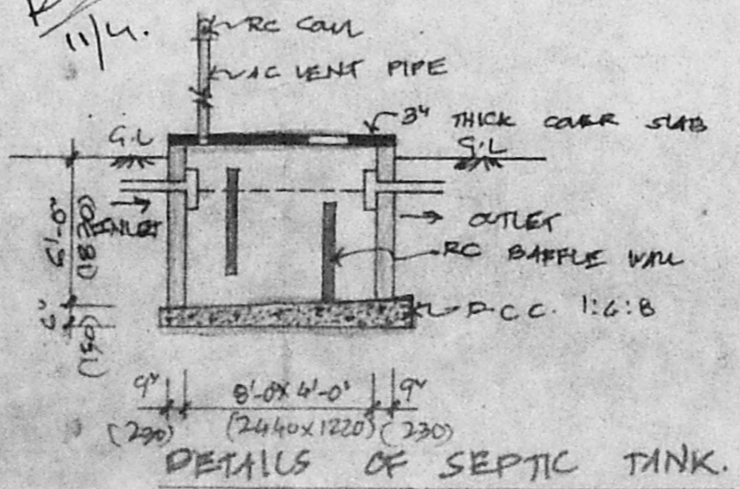 11/4.
RC COWL
AC VENT PIPE
3" THICK COVER SLAB
G.L
G.L
INLET
OUTLET
RC BAFFLE WALL
6'-0"
(1830)
6"
(150)
P.C.C. 1:6:8
9"
8'-0" X 4'-0"
9"
(230)
(2440X1220)
(230)
DETAILS OF SEPTIC TANK.